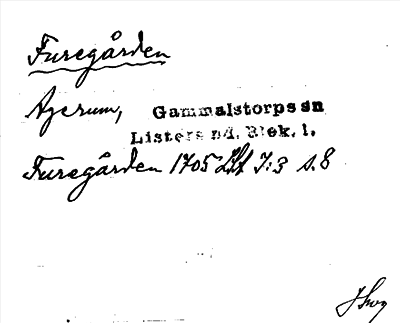 Furegården
Agerum, Gammalstorps sn
Listers hd. Blek. l.
Furegården 1705 LH I:3 s. 8